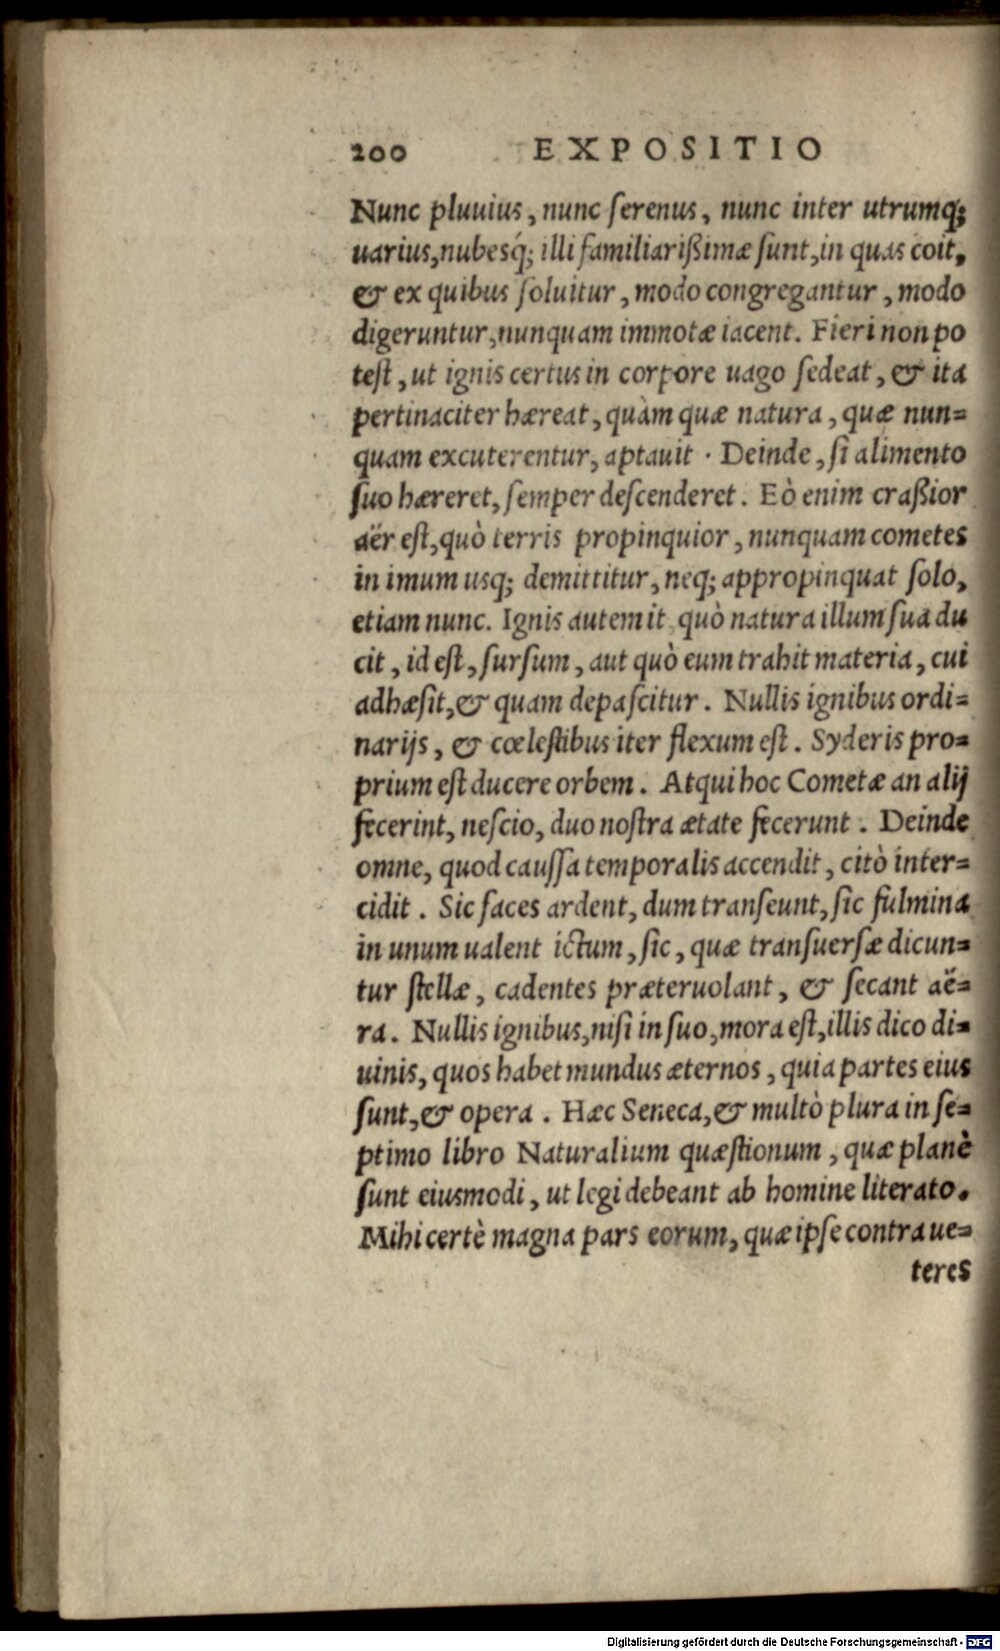 200 EXPOSITIO
Nunc pluuius, nunc ſerenus, nunc inter utrumq;
uarius, nubesq́; illi familiarißimæ ſunt, in quas coit,
& ex quibus ſoluitur, modo congregantur, modo
digeruntur, nunquam immotæ iacent. Fieri non po
teſt, ut ignis certus in corpore uago ſedeat, & ita
pertinaciter hæreat, quàm quæ natura, quæ nun=
quam excuterentur, aptauit. Deinde, ſi alimento
ſuo hæreret, ſemper deſcenderet. Eò enim craßior
aër eſt, quò terris propinquior, nunquam cometes
in imum usq; demittitur, neq; appropinquat ſolo,
etiam nunc. Ignis autem it quò natura illum ſua du
cit, id eſt, ſurſum, aut quò eum trahit materia, cui
adhæſit, & quam depaſcitur. Nullis ignibus ordi=
narijs, & cœleſtibus iter flexum eſt. Syderis pro=
prium eſt ducere orbem. Atqui hoc Cometæ an alij
fecerint, neſcio, duo noſtra ætate fecerunt. Deinde
omne, quod cauſſa temporalis accendit, citò inter=
cidit. Sic faces ardent, dum tranſeunt, ſic fulmina
in unum ualent ictum, ſic, quæ tranſuerſæ dicun=
tur ſtellæ, cadentes præteruolant, & ſecant aë=
ra. Nullis ignibus, niſi in ſuo, mora eſt, illis dico di=
uinis, quos habet mundus æternos, quia partes eius
ſunt, & opera. Hæc Seneca, & multò plura in ſe=
ptimo libro Naturalium quæſtionum, quæ planè
ſunt eiusmodi, ut legi debeant ab homine literato.
Mihi certè magna pars eorum, quæ ipſe contra ue=
teres
Digitalisierung gefördert durch die Deutsche Forschungsgemeinschaft - DFG